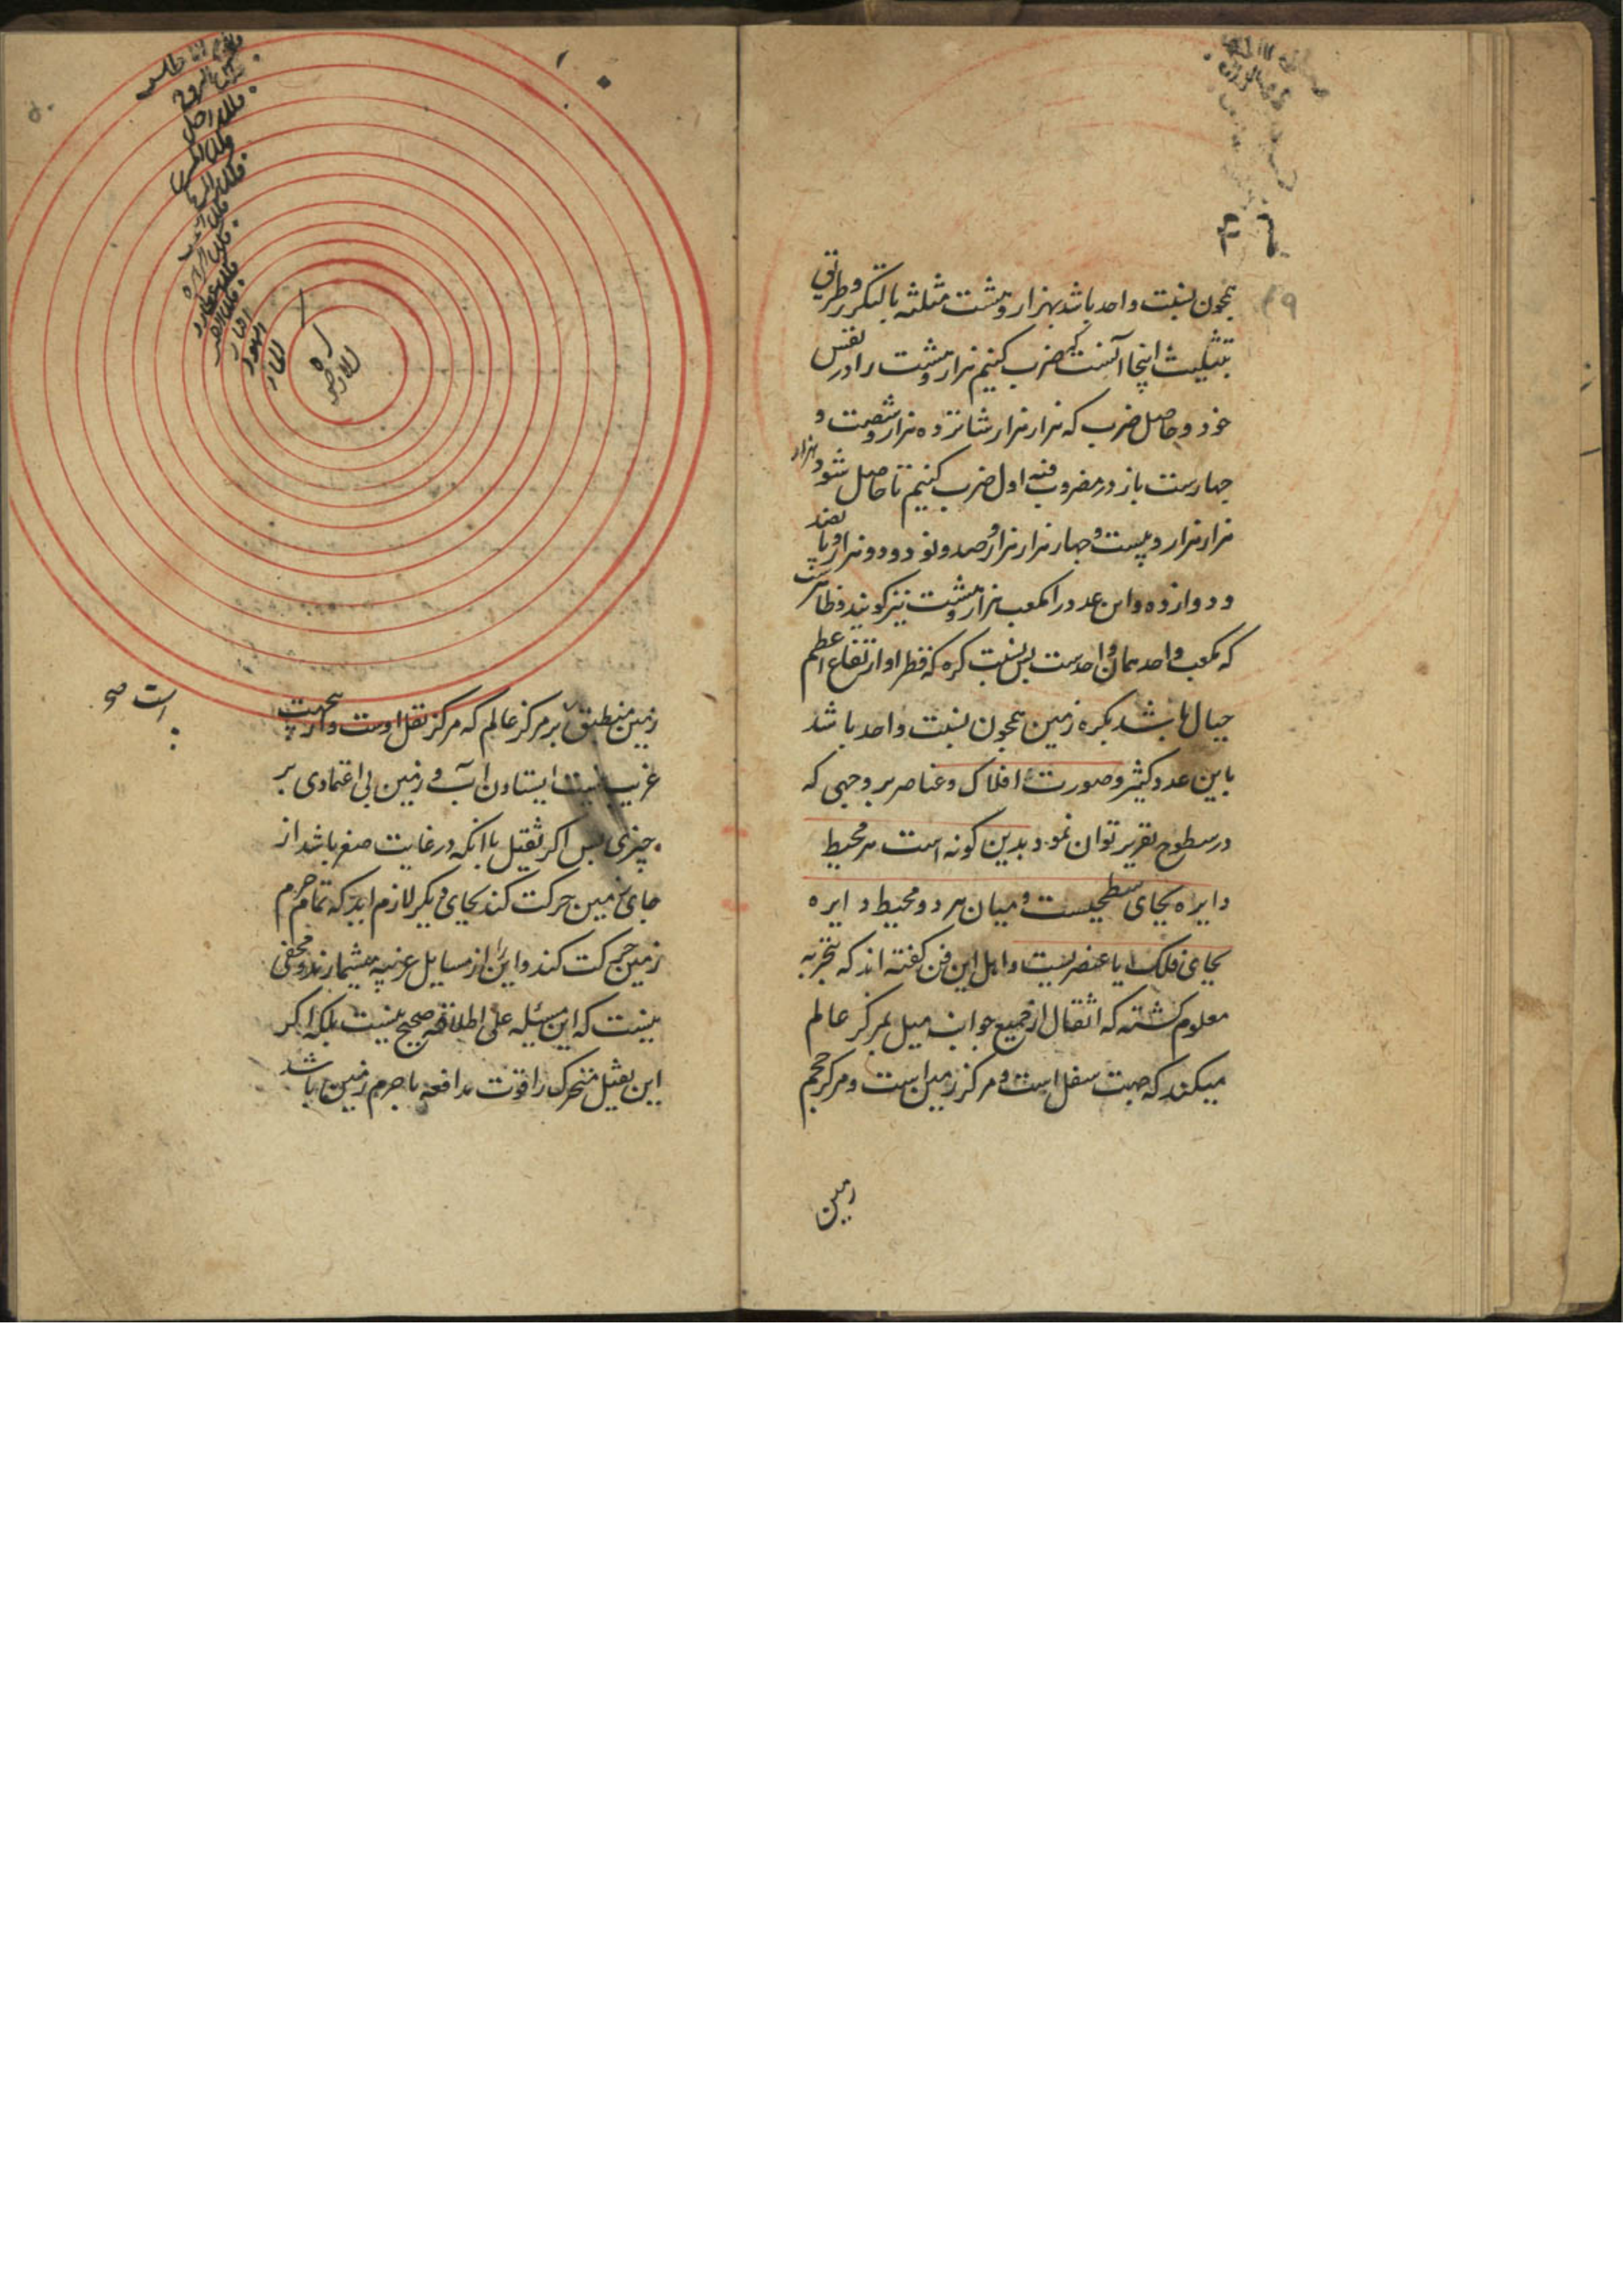 ۴٦
۴۹
همچون نسبت واحد باشد بهزار و هشت مثلثه بالتکریر و طریق
تثلیث اینجا آنست که ضرب کنیم هزار و هشت را در نفس
خود و حاصل ضرب که هزار هزار شانزده هزار و شصت و
چهارست باز در مضروب فیه اول ضرب کنیم تا حاصل شود هزار
هزار هزار و بیست و چهار هزار هزار و صد و نود و دو هزار و پانصد
و دوازده و این عدد را مکعب هزار و هشت نیز گویند و ظاهرست
که مکعب واحد همان واحدست پس نسبت کره که قطر او ارتفاع اعظم
جبال باشد بکره زمین همچون نسبت واحد باشد
باین عدد کثیر و صورت افلاک و عناصر بر وجهی که
در سطوح تقریر توان نمود بدین گونه است هر محیط
دایره بجای سطحیست و میان هر دو محیط دایره
بجای فلک یا عنصریست و اهل این فن گفته اند که بتجربه
معلوم گشته که اثقال از جمیع جوانب میل بمرکز عالم
میکند که جهت سفل است و مرکز زمین است و مرکز حجم
زمین
فلک زحل
فلک عطارد
فلک القمر
النار
الهواء
الماء
کره
الارض
است صح
زمین منطبق بر مرکز عالم که مرکز ثقل اوست و از بجهت
غریب نیست ایستادن آب و زمین بی اعتمادی بر
چیزی پس اکر ثقیل با آنکه در غایت صغر باشد از
جای زمین حرکت کند بجای دیگر لازم آید که تمام جرم
زمین حرکت کند و این را از مسایل غریبه میشمارند و مخفی
نیست که این مسئله علی اطلاقه صحیح نیست بلکه اکر
این ثقیل متحرک را قوت مدافعه با جرم زمین باشد